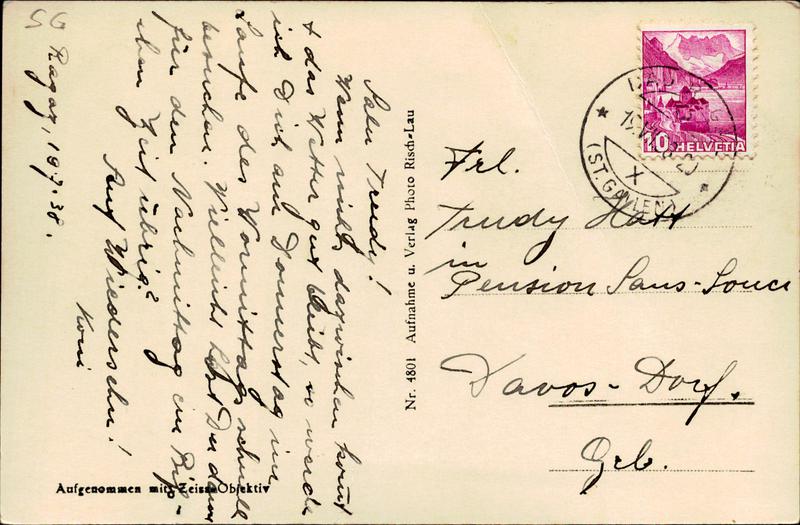 SG
Ragaz, 18.7.38.
Salü Trudy!
Wenn nichts dazwischen kommt
+ das Wetter gut bleibt, so werde
ich Dich am Donnerstag im
Laufe des Vormittags schnell
besuchen. Vielleicht hast Du dann
für den Nachmittag ein Biss-
chen Zeit übrig?
Auf Wiedersehn!
Koni
Aufgenommen mit Zeiss-Objektiv
Nr. 4801 Aufnahme u. Verlag Photo Risch-Lau
HELVETIA
10
BAD
(ST. GALLEN)
X
Frl.
Trudy Hatt
in
Pension Sans-Souci
Davos-Dorf.
Grb.